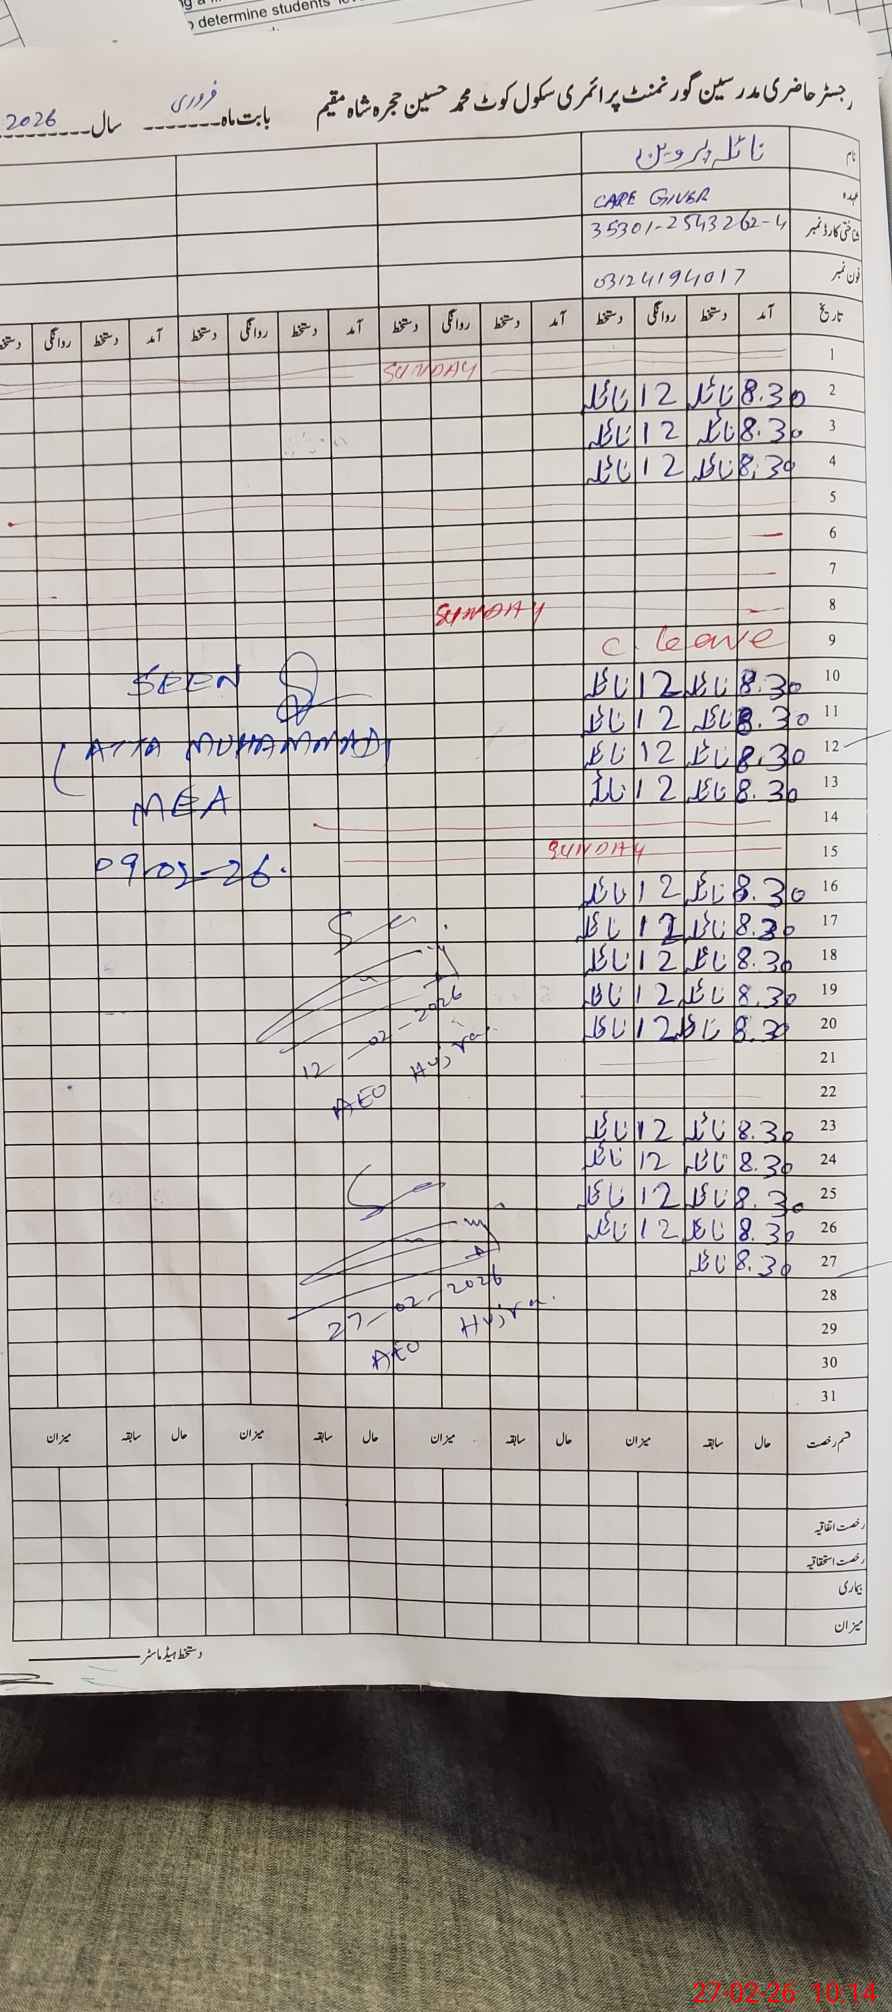 determine students'
رجسٹر حاضری مدرسین گورنمنٹ پرائمری سکول کوٹ محمد حسین حجرہ شاہ مقیم بابت ماہ فروری سال 2026
نام نائلہ پروین
عہدہ CARE GIVER
شناختی کارڈ نمبر 35301-2543262-4
فون نمبر 03124194017
تاریخ آمد دستخط روانگی دستخط آمد دستخط روانگی دستخط آمد دستخط روانگی دستخط آمد دستخط روانگی دستخط
1 SUNDAY
2 8.30 نائلہ 12 نائلہ
3 8.30 نائلہ 12 نائلہ
4 8.30 نائلہ 12 نائلہ
5
6
7
8 SUNDAY
9 C. leave
10 8.30 نائلہ 12 نائلہ
11 8.30 نائلہ 12 نائلہ
12 8.30 نائلہ 12 نائلہ
13 8.30 نائلہ 12 نائلہ
14
15 SUNDAY
16 8.30 نائلہ 12 نائلہ
17 8.30 نائلہ 12 نائلہ
18 8.30 نائلہ 12 نائلہ
19 8.30 نائلہ 12 نائلہ
20 8.30 نائلہ 12 نائلہ
21
22
23 8.30 نائلہ 12 نائلہ
24 8.30 نائلہ 12 نائلہ
25 8.30 نائلہ 12 نائلہ
26 8.30 نائلہ 12 نائلہ
27 8.30 نائلہ
28
29
30
31
SEEN
(ATTA MUHAMMAD)
MEA
09-02-26.
12-02-2026
AEO Hujra.
27-02-2026
AEO Hujra.
قسم رخصت حال سابقہ میزان حال سابقہ میزان حال سابقہ میزان حال سابقہ میزان
رخصت اتفاقیہ
رخصت استحقاقیہ
بیماری
میزان
دستخط ہیڈ ماسٹر
27-02-26 10:14